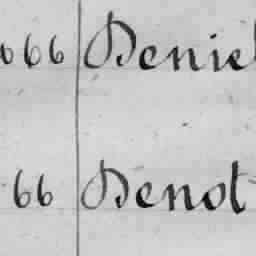 066 Deniel
66 Denot